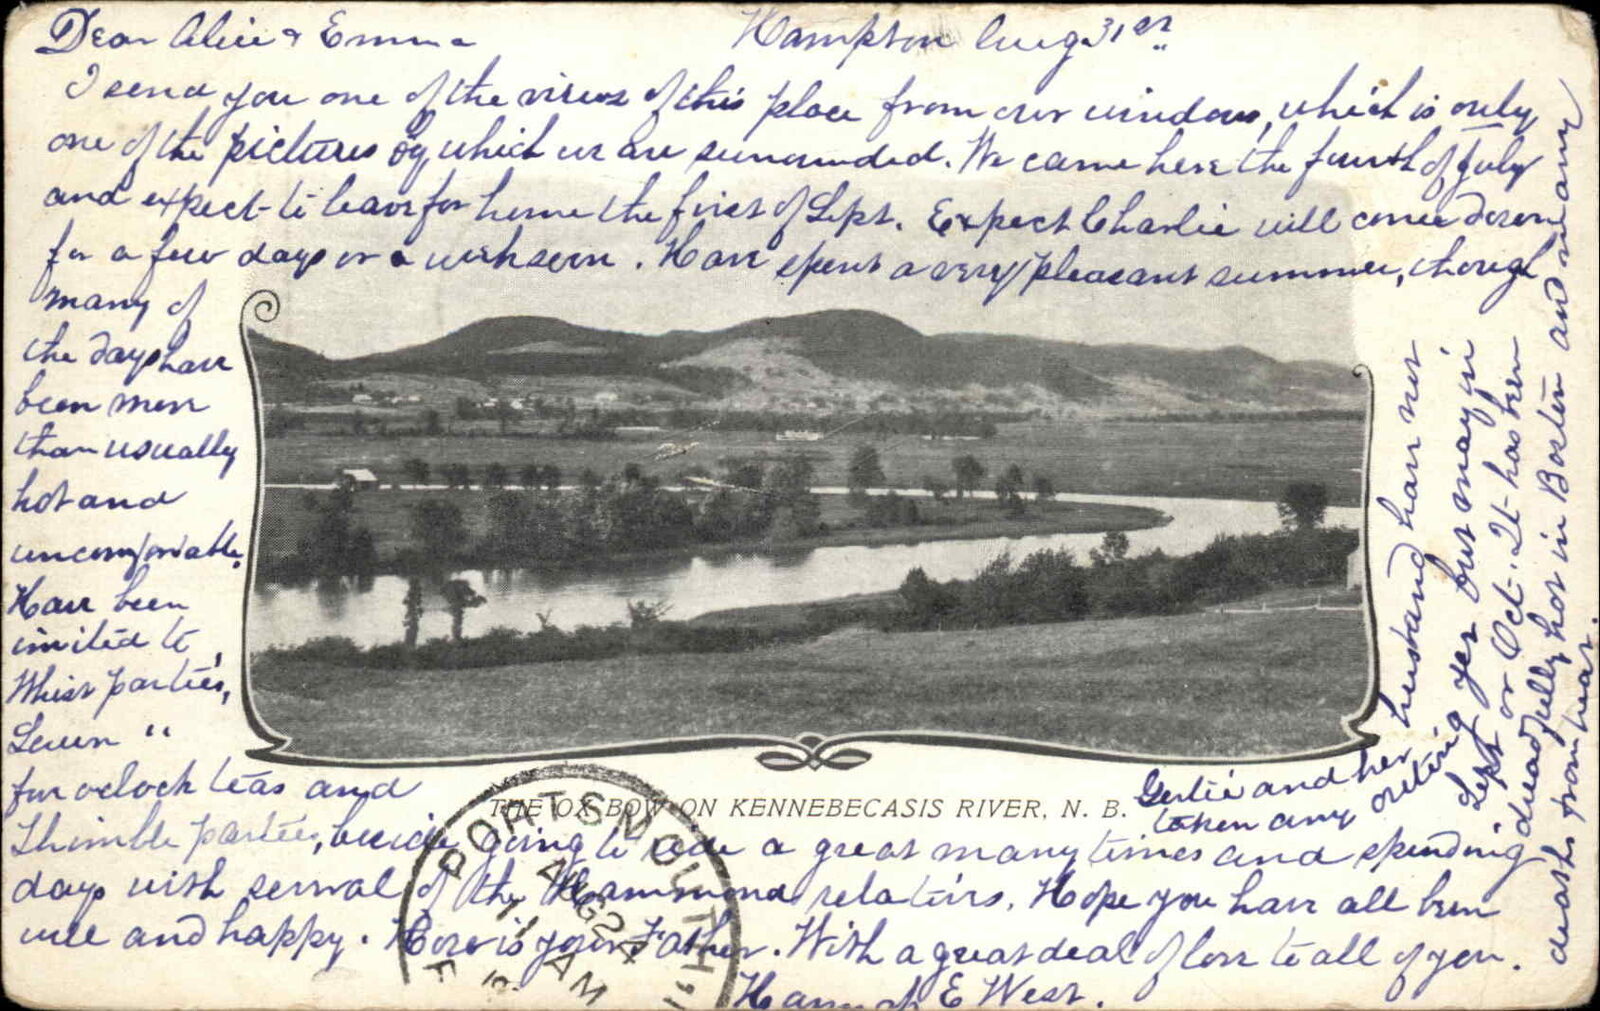 Dear Alice & Emma
Hampton Aug 31st
I send you one of the views of this place from our window, which is only
one of the pictures by which we are surrounded. We came here the fourth of July
and expect to leave for home the first of Sept. Expect Charlie will come down
for a few days or a week soon. Have spent a very pleasant summer, though
many of
the days have
been more
than usually
hot and
uncomfortable.
Have been
invited to
Whist parties,
"
four oclock teas and
Thimble parties, beside going to ride a great many times and spending
days with several of the Hammond relatives. Hope you have all been
well and happy. How is your Father. With a great deal of love to all of you.
Hannah E West.
Gertie and her husband have not
taken any outing yet but may in
Sept or Oct. It has been
dreadfully hot in Boston and many
deaths from heat.
THE OX-BOW ON KENNEBECASIS RIVER, N. B.
PORTSMOUTH
AUG 24
AM